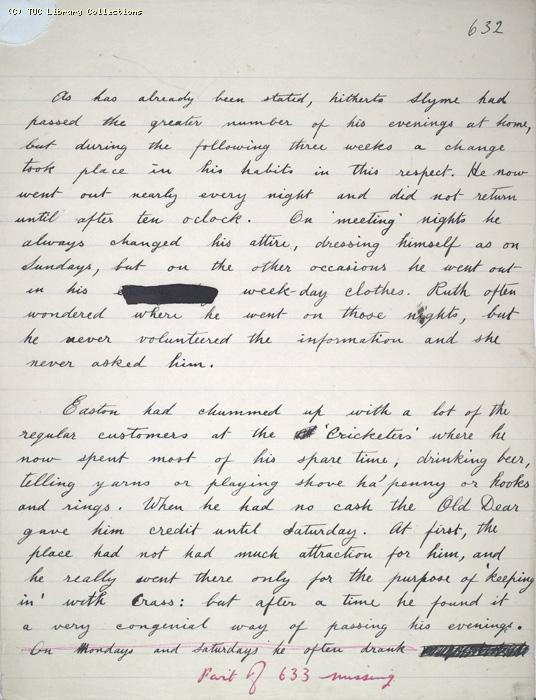 (C) TUC Library Collections
632
As has already been stated, hitherto Slyme had
passed the greater number of his evenings at home,
but during the following three weeks a change
took place in his habits in this respect. He now
went out nearly every night and did not return
until after ten oclock. On 'meeting' nights he
always changed his attire, dressing himself as on
Sundays, but on the other occasions he went out
in his week-day clothes. Ruth often
wondered where he went on those nights, but
he never volunteered the information and she
never asked him.
Easton had chummed up with a lot of the
regular customers at the 'Cricketers' where he
now spent most of his spare time, drinking beer,
telling yarns or playing shove ha'penny or hooks
and rings. When he had no cash the Old Dear
gave him credit until Saturday. At first, the
place had not had much attraction for him, and
he really went there only for the purpose of 'keeping
in' with Crass: but after a time he found it
a very congenial way of passing his evenings.
On Mondays and Saturdays he often drank
Part of 633 missing